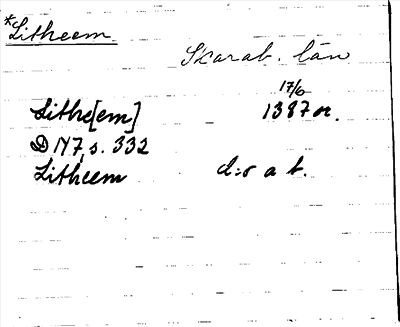 *Litheem.
Skarab. län
17/6
Lithe[em] 1387 or.
D 147, s. 332
Litheem d:o a b.